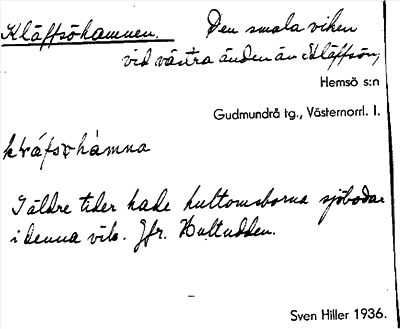 Kläffsöhamnen. Den smala viken
vid västra änden än Kläffsön,
Hemsö s:n
Gudmundrå tg., Västernorrl. l.
I äldre tider hade hultomsborna sjöbodar
i denna vik. Jfr. Hultudden.
Sven Hiller 1936.